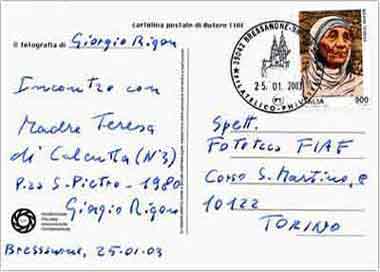 cartolina postale di Autore FIAF
© fotografia di Giorgio Rigon
Incontro con
Madre Teresa
di Calcutta (N°3)
P.za S. Pietro - 1980
Giorgio Rigon
Bressanone, 25-01-03
39042 BRESSANONE
25. 01. 200
FILATELICO-PHIL
ITALIA
900
Spett.
Fototeca FIAF
Corso S. Martino, 8
10122
TORINO